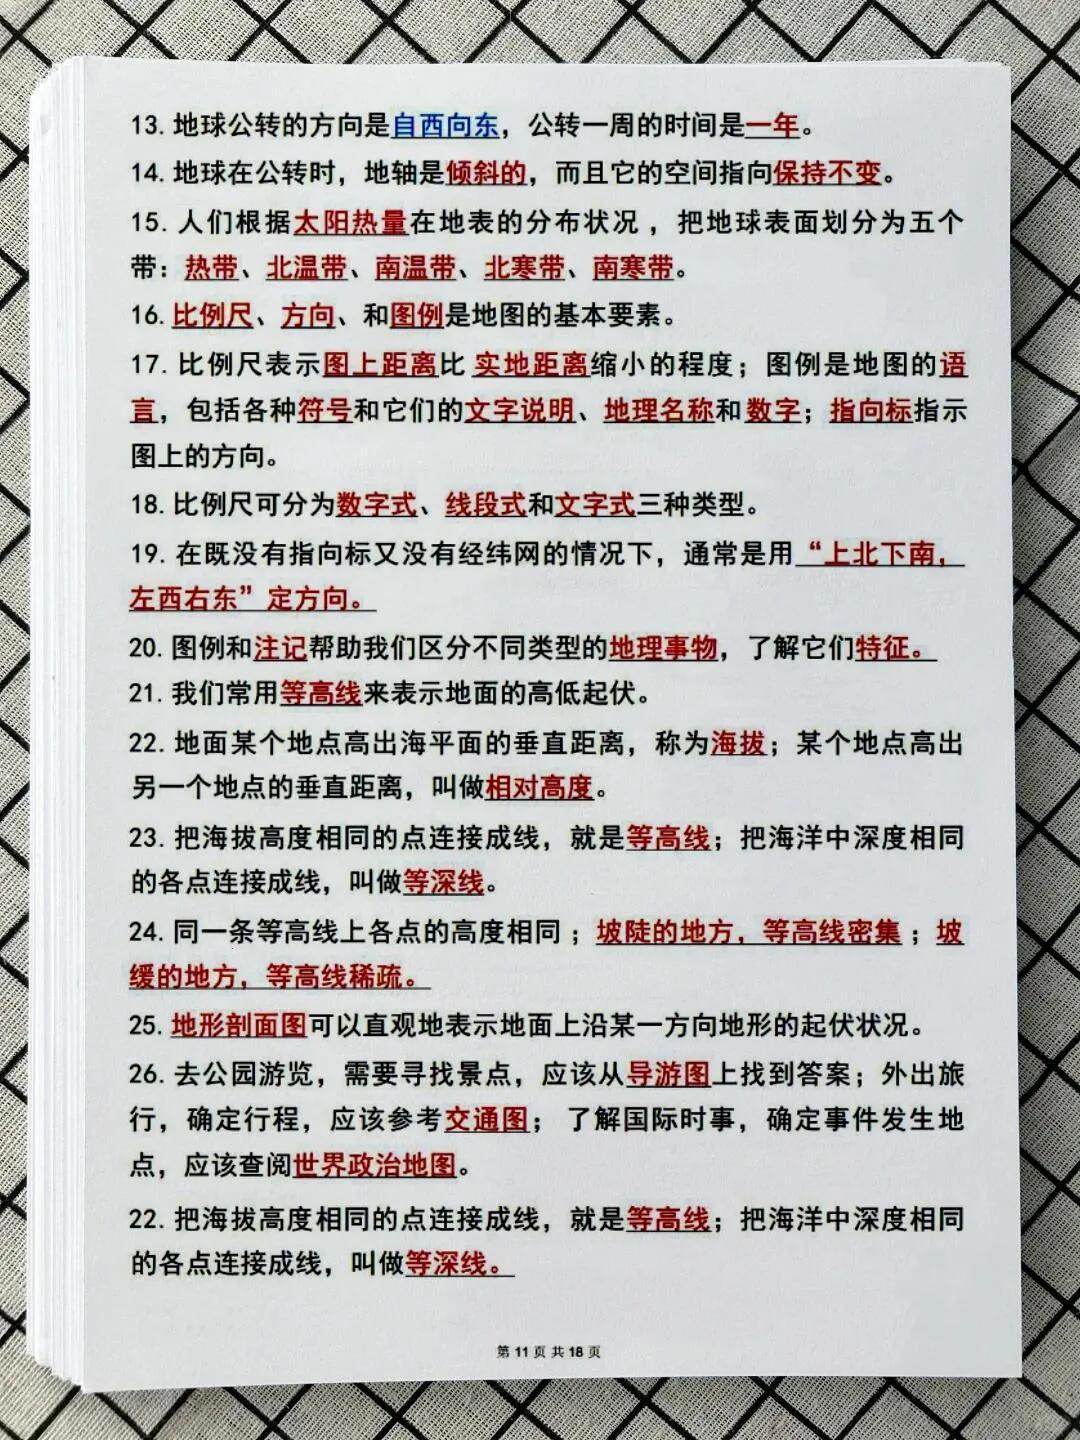 13. 地球公转的方向是自西向东，公转一周的时间是一年。
14. 地球在公转时，地轴是倾斜的，而且它的空间指向保持不变。
15. 人们根据太阳热量在地表的分布状况，把地球表面划分为五个
带：热带、北温带、南温带、北寒带、南寒带。
16. 比例尺、方向、和图例是地图的基本要素。
17. 比例尺表示图上距离比 实地距离缩小的程度；图例是地图的语
言，包括各种符号和它们的文字说明、地理名称和数字；指向标指示
图上的方向。
18. 比例尺可分为数字式、线段式和文字式三种类型。
19. 在既没有指向标又没有经纬网的情况下，通常是用“上北下南，
左西右东”定方向。
20. 图例和注记帮助我们区分不同类型的地理事物，了解它们特征。
21. 我们常用等高线来表示地面的高低起伏。
22. 地面某个地点高出海平面的垂直距离，称为海拔；某个地点高出
另一个地点的垂直距离，叫做相对高度。
23. 把海拔高度相同的点连接成线，就是等高线；把海洋中深度相同
的各点连接成线，叫做等深线。
24. 同一条等高线上各点的高度相同；坡陡的地方，等高线密集；坡
缓的地方，等高线稀疏。
25. 地形剖面图可以直观地表示地面上沿某一方向地形的起伏状况。
26. 去公园游览，需要寻找景点，应该从导游图上找到答案；外出旅
行，确定行程，应该参考交通图；了解国际时事，确定事件发生地
点，应该查阅世界政治地图。
22. 把海拔高度相同的点连接成线，就是等高线；把海洋中深度相同
的各点连接成线，叫做等深线。
第 11 页 共 18 页